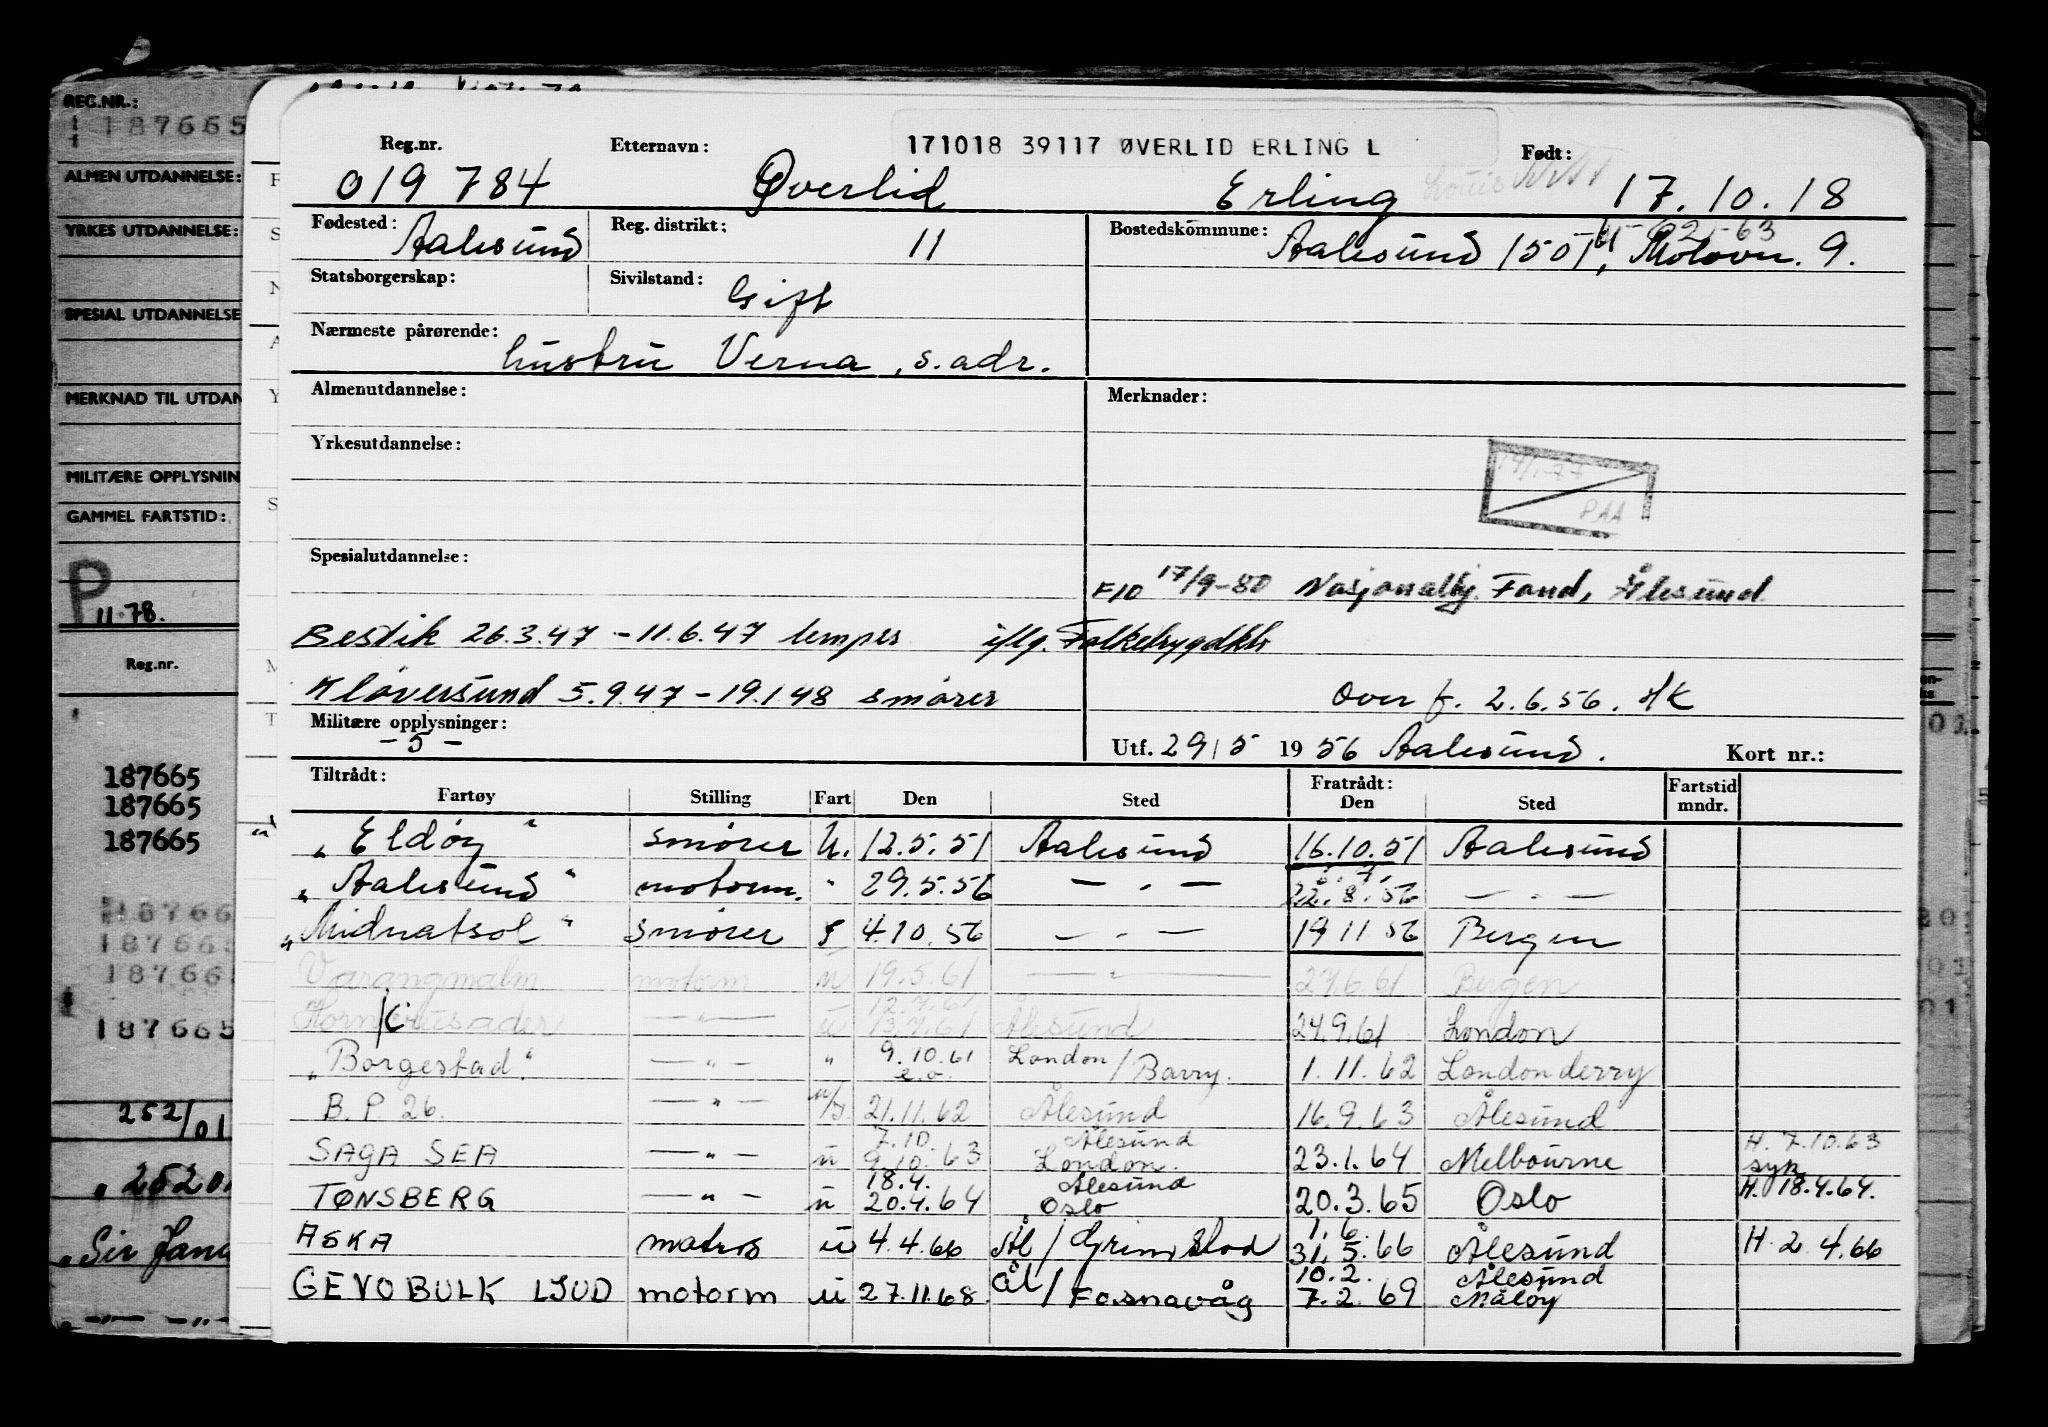 REG.NR.:
187665
ALMEN UTDANNELSE:
YRKES UTDANNELSE:
SPESIAL UTDANNELSE
MERKNAD TIL UTDAN
MILITÆRE OPPLYSNIN
GAMMEL FARTSTID:
P
11.78.
Reg.nr.
187665
187665
187665
18766
187665
18766
187665
252/01
25201
"Sir
Reg.nr. Etternavn: 171018 39117 ØVERLID ERLING L Født:
019 784 Øverlid Erling Louis 17.10.18
Fødested: Aalesund Reg. distrikt: 11 Bostedskommune: Aalesund 1501, 9.
Statsborgerskap: Sivilstand: Gift
Nærmeste pårørende: hustru Verna, s. adr.
Almenutdannelse: Merknader:
Yrkesutdannelse:
14/1-77
PAA
Spesialutdannelse:
F10 17/9-80 Nasjonalbj. Fond, Ålesund
Bestik 26.3.47 - 11.6.47 lemper iflg.
Kløversund 5.9.47 - 19.1.48 smører Over f. 2.6.56.
Militære opplysninger: - 5 - Utf. 29/5 1956 Aalesund. Kort nr.:
Tiltrådt: Fratrådt: Fartstid
Fartøy Stilling Fart Den Sted Den Sted mndr.
"Eldøy" smører U. 12.5.51 Aalesund 16.10.51 Aalesund
"Aalesund" motorm. " 29.5.56 — " — 22.8.56 — " —
"Midnatsol" smører 4.10.56 — " — 19 11 56 Bergen
Varangmalm motorm u 19.5.61 — " — 27.6.61 Bergen
12.7.61
Horn Crusader — " — u 13.7.61 Ålesund 24.9.61 London
"Borgestad" — " — " 9.10.61 London / Barry. 1.11.62 Londonderry
e.o.
B.P. 26. — " — 21.11.62 Ålesund 16.9.63 Ålesund
7.10 Ålesund H. 7.10.63
SAGA SEA — " — u 9.10.63 London. 23.1.64 Melbourne syk
18.4. Ålesund
TØNSBERG — " — u 20.4.64 Oslo 20.3.65 Oslo H. 18.4.64.
1.6.
ASKA matros u 4.4.66 Ål / Grimstad 31.5.66 Ålesund H. 2.4.66
10.2. Ålesund
GEVOBULK LJUD motorm u 27.11.68 Ål / Fosnavåg 7.2.69 Måløy